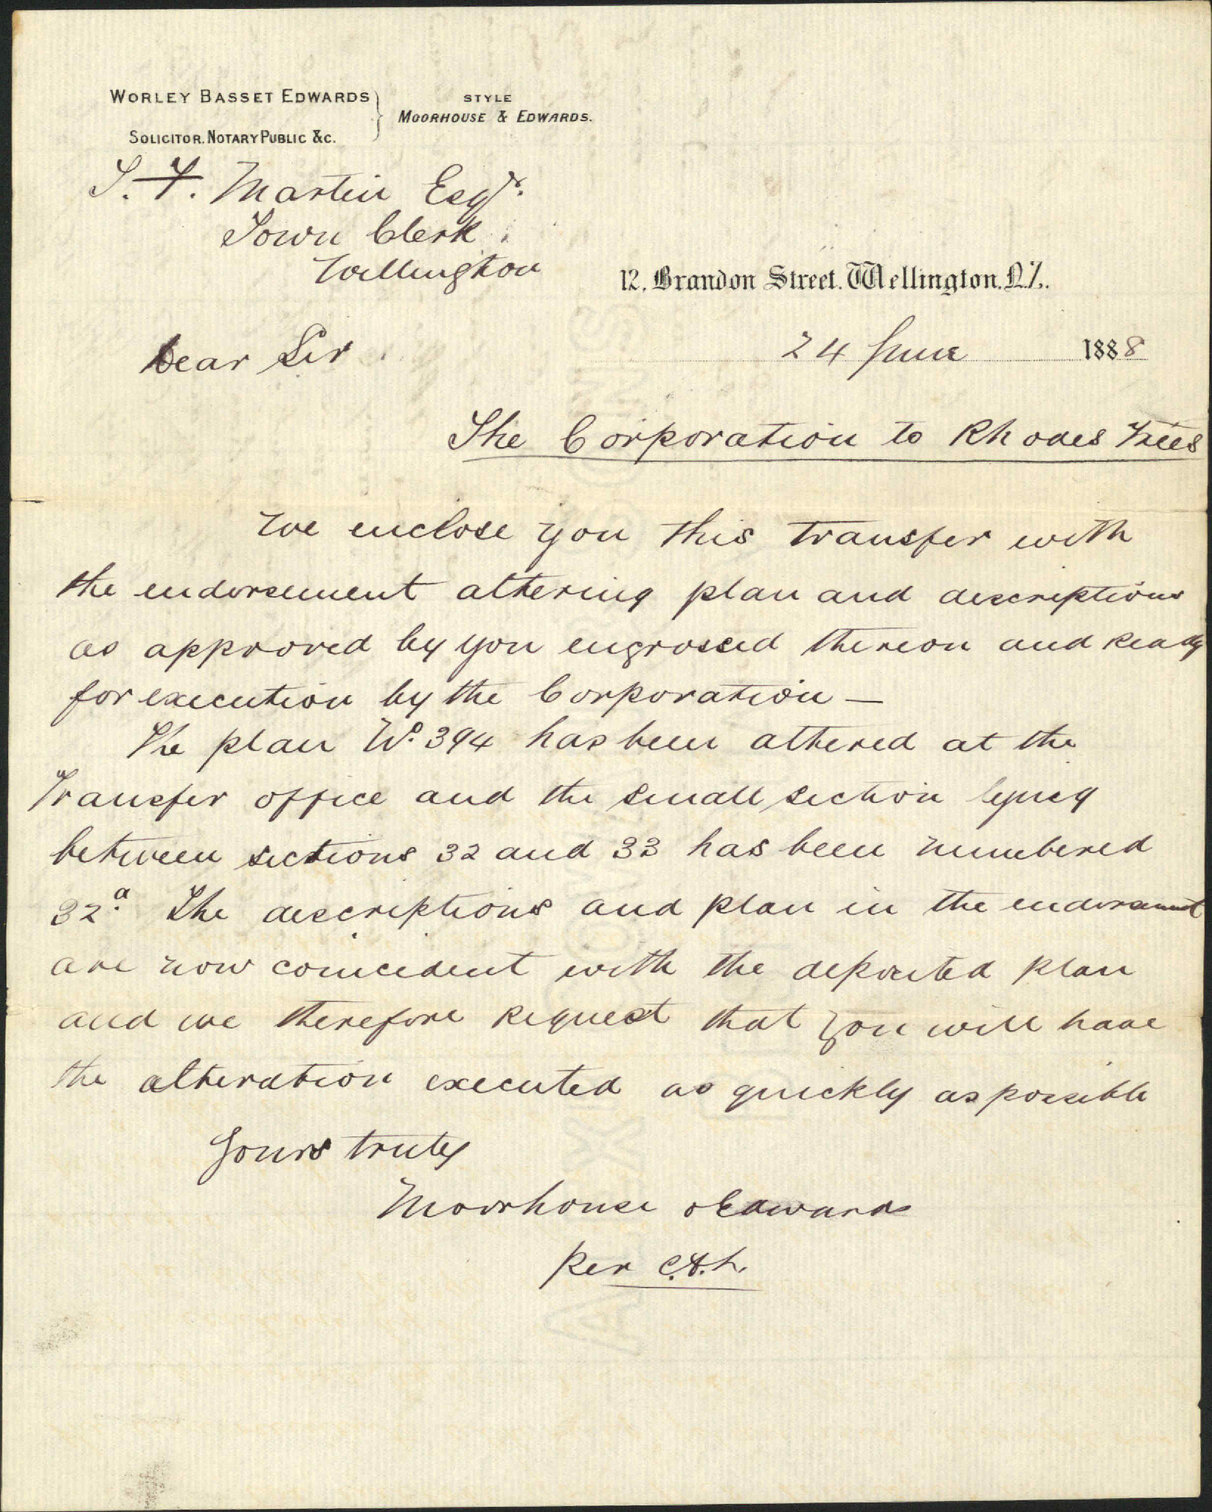 WORLEY BASSET EDWARDS
SOLICITOR. NOTARY PUBLIC &C.
STYLE
MOORHOUSE & EDWARDS.
Martin Esqr.
Town Clerk
Wellington
12. Brandon Street. Wellington. N.Z.
24 June 1888
Dear Sir
The Corporation to Rhodes Trees
We enclose you this transfer with
the endorsement altering plan and descriptions
as approved by you engrossed thereon and ready
for execution by the Corporation —
The plan No. 394 has been altered at the
Transfer office and the small section lying
between sections 32 and 33 has been numbered
32a. The descriptions and plan in the endorsement
are now coincident with the deposited plan
and we therefore request that you will have
the alteration executed as quickly as possible
Yours truly
Moorhouse & Edwards
Per